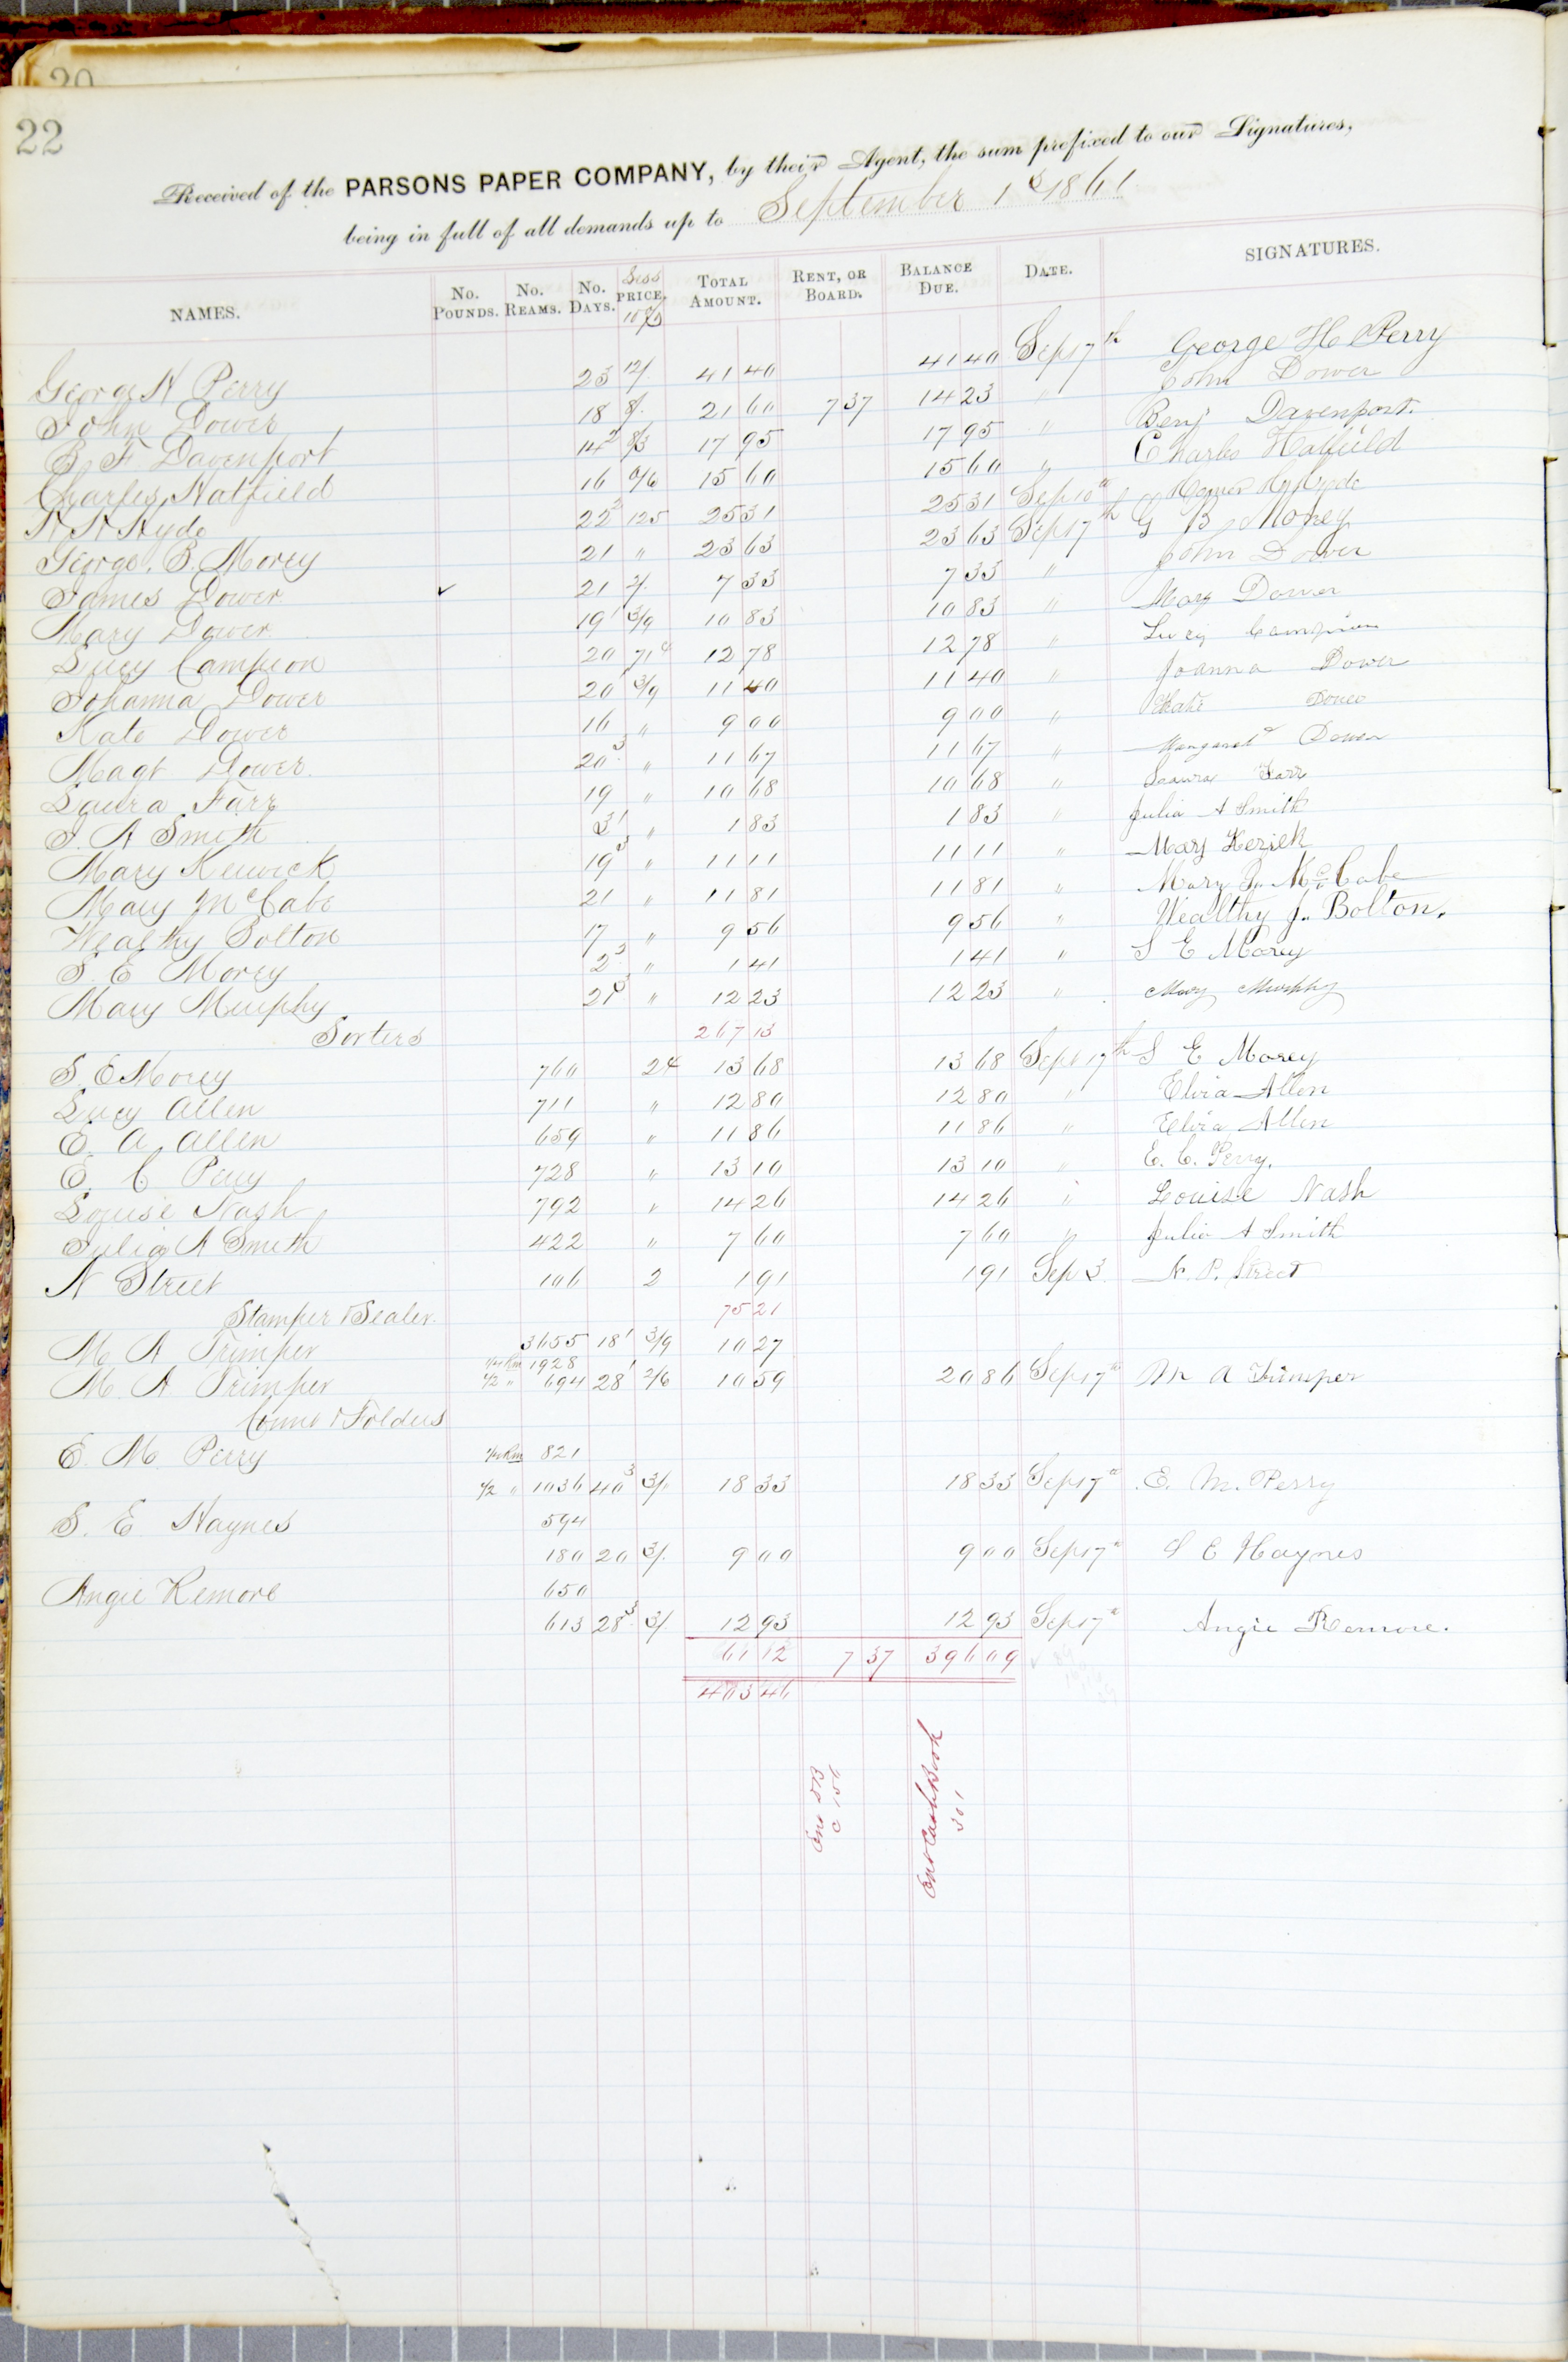 20
22
Received of the PARSONS PAPER COMPANY, by their Agent, the sum prefixed to our Signatures,
being in full of all demands up to September 1st 1861
NAMES. No. POUNDS. No. REAMS. No. DAYS. Less PRICE. 10% TOTAL AMOUNT. RENT, OR BOARD. BALANCE DUE. DATE. SIGNATURES.
George H Perry 23 12/. 41 40 41 40 Sep 17th George H Perry
John Dower 18 8/. 21 60 7 37 14 23 " John Dower
B. F. Davenport 14 2 8/3 17 95 17 95 " Benj Davenport.
Charles Hatfield 16 6/6 15 60 15 60 " Charles Hatfield
H H Hyde 22 2 125 25 31 25 31 Sep 10th
George. B. Morey 21 " 23 63 23 63 Sep 17th G B Morey
James Dower ✓ 21 2/. 7 33 7 33 " John Dower
Mary Dower 19 1 3/9 10 83 10 83 " Mary Dower
Lucy Campion 20 71c 12 78 12 78 " Lucy Campion
Johanna Dower 20 1 3/9 11 40 11 40 " Joanna Dower
Kate Dower 16 " 9 00 9 00 " Kate Dower
Magt Dower 20 3 " 11 67 11 67 " Margaret Dower
Laura Farr 19 " 10 68 10 68 " Laura Farr
J. A Smith 3 1 " 1 83 1 83 " Julia A Smith
Mary Kewick 19 3 " 11 11 11 11 " Mary Kezick
Mary McCabe 21 " 11 81 11 81 " Mary J. McCabe
Wealthy Bolton 17 " 9 56 9 56 " Wealthy J. Bolton.
S. E Morey 2 3 " 1 41 1 41 " S E Morey
Mary Murphy 21 3 " 12 23 12 23 " Mary Murphy
Sorters 267 13
S. E Morey 760 2c 13 68 13 68 Sept 17th S E Morey
Lucy Allen 711 " 12 80 12 80 " Elvia Allen
E. A. Allen 659 " 11 86 11 86 " Elvia Allen
E. C Perry 728 " 13 10 13 10 " E. C. Perry.
Louise Nash 792 " 14 26 14 26 " Louise Nash
Julia A Smith 422 " 7 60 7 60 " Julia A Smith
N Street 106 2 1 91 1 91 Sep 3. N. P. Street
Stamper & Sealer. 75 21
M A Trimper 3655 18 1 3/9 10 27
1928
M. A Trimper 1/2 " 694 28 1 2/6 10 59 20 86 Sep 17th M A Trimper
& Folders
E. M. Perry 821
1/2 " 1036 40 3 3/. 18 33 18 33 Sep 17th E. M. Perry
S. E Haynes 594
180 20 3/. 9 00 9 00 Sep 17th S E Haynes
Angie Remore 650
613 28 3 3/. 12 93 12 93 Sep 17th Angie Remore.
61 12 7 37 396 09 ✓
403 46
Ent Cash Book
301